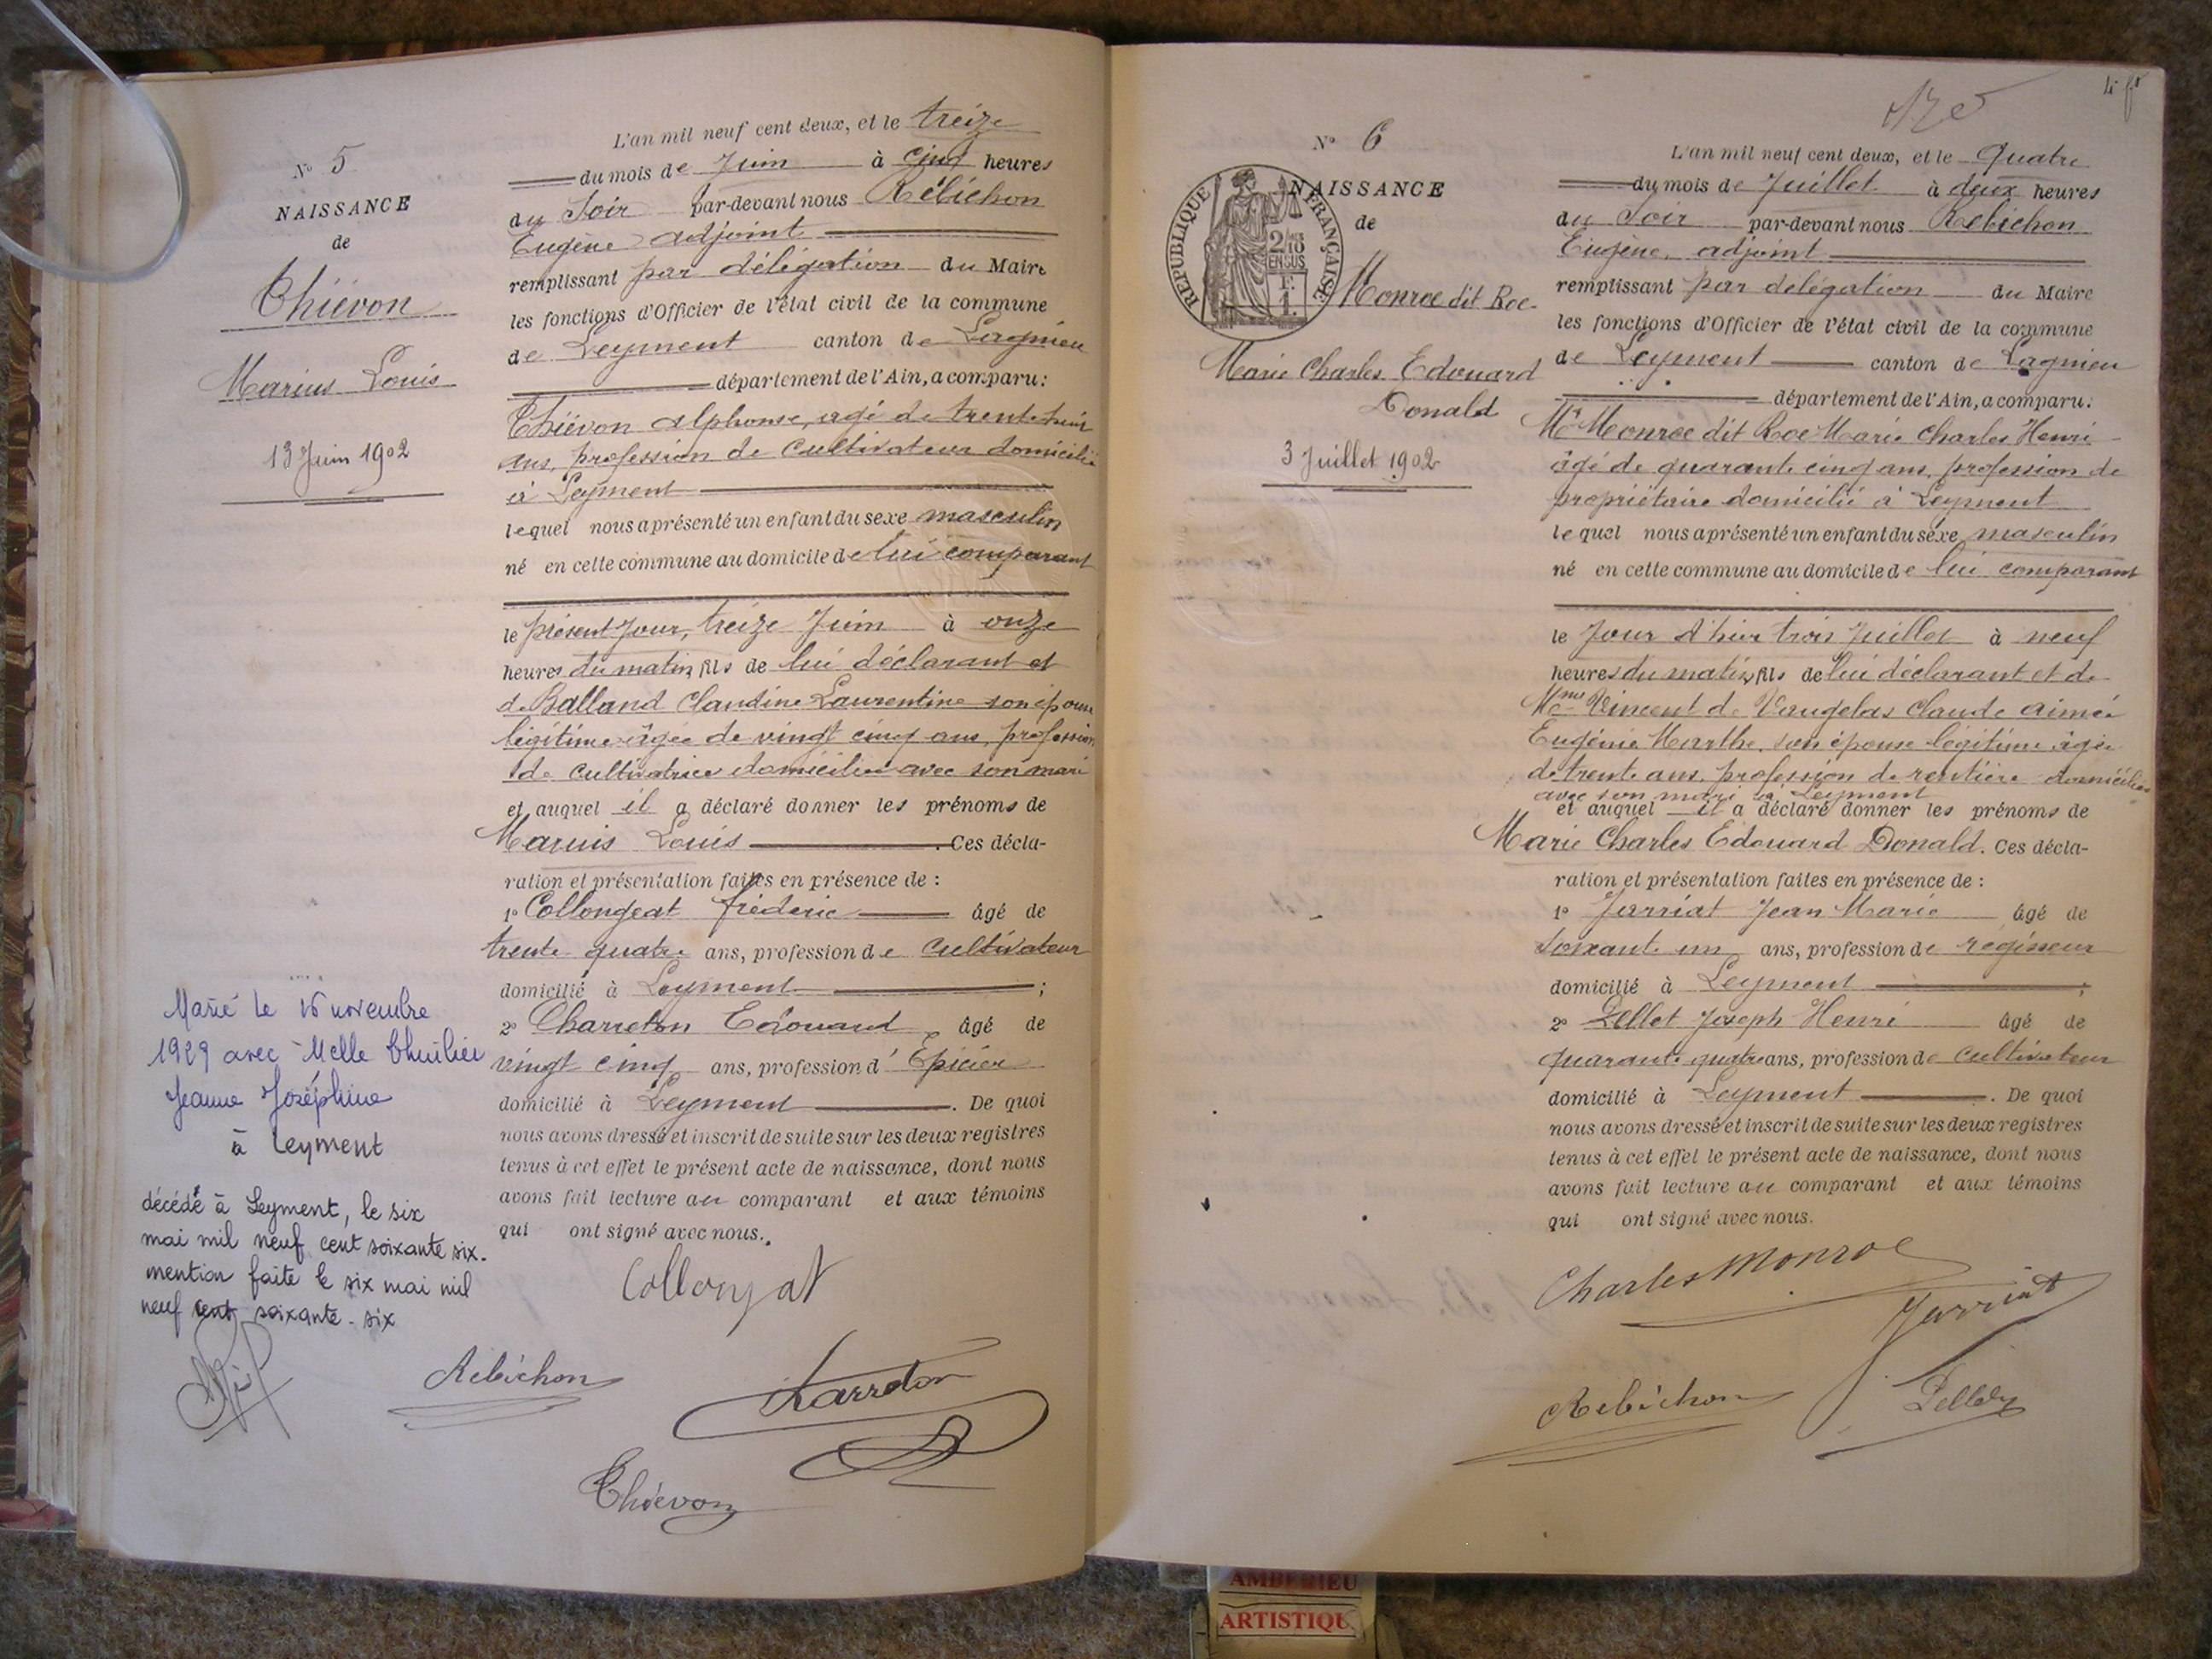 N° 5
NAISSANCE
de
Thiévon
Marius Louis
13 Juin 1902
Marié le 16 novembre
1929 avec Melle Thuilier
Jeanne Joséphine
à Leyment
décédé à Leyment, le six
mai mil neuf cent soixante six.
mention faite le six mai mil
neuf cent soixante-six
L'an mil neuf cent deux, et le treize
du mois de Juin à cinq heures
du Soir par-devant nous Rébichon
Eugène adjoint
remplissant par délégation du Maire
les fonctions d'Officier de l'état civil de la commune
de Leyment canton de Lagnieu
département de l'Ain, a comparu:
Thiévon Alphonse, agé de trente huit
ans, profession de Cultivateur domicilié
à Leyment
lequel nous a présenté un enfant du sexe masculin
né en cette commune au domicile de lui comparant
le présent Jour, treize Juin à onze
heures du matin, fils de lui déclarant et
de Balland Claudine Laurentine son épouse
légitime âgée de vingt cinq ans, profession
de cultivatrice domiciliée avec son mari
et auquel il a déclaré donner les prénoms de
Maruis Louis Ces décla-
ration et présentation faites en présence de :
1° Collongeat fréderic âgé de
trente quatre ans, profession de Cultivateur
domicilié à Leyment ;
2° Charreton Edouard âgé de
vingt cinq ans, profession d' Epicier
domicilié à Leyment . De quoi
nous avons dressé et inscrit de suite sur les deux registres
tenus à cet effet le présent acte de naissance, dont nous
avons fait lecture au comparant et aux témoins
qui ont signé avec nous.
Collonjat
Rebichon
Karreton
Thiévon
4 f°
N° 6
NAISSANCE
de
RÉPUBLIQUE FRANÇAISE
2/10
EN SUS
F.
1.
Monroe dit Roe
Marie Charles Edouard
Donald
3 Juillet 1902
L'an mil neuf cent deux, et le Quatre
du mois de Juillet à deux heures
du Soir par-devant nous Rebichon
Eugène, adjoint
remplissant par délégation du Maire
les fonctions d'Officier de l'état civil de la commune
de Leyment canton de Lagnieu
département de l'Ain, a comparu:
Mr Monroe dit Roe Marie Charles Henri
âgé de quarante cinq ans, profession de
propriétaire domicilié à Leyment
lequel nous a présenté un enfant du sexe masculin
né en cette commune au domicile de lui comparant
le Jour d'hier trois Juillet à neuf
heures du matin, fils de lui déclarant et de
Mme Vincent de Vaugelas Claude Aimée
Eugénie Marthe, son épouse légitime âgée
de trente ans, profession de rentière domiciliée
avec son mari à Leyment
et auquel il a déclaré donner les prénoms de
Marie Charles Edouard Donald. Ces décla-
ration et présentation faites en présence de :
1° Jarriat Jean Marie âgé de
soixante un ans, profession de régisseur
domicilié à Leyment ;
2° Pellet Joseph Henri âgé de
quarante quatre ans, profession de cultivateur
domicilié à Leyment . De quoi
nous avons dressé et inscrit de suite sur les deux registres
tenus à cet effet le présent acte de naissance, dont nous
avons fait lecture au comparant et aux témoins
qui ont signé avec nous.
Charles Monroe
Jarriat
Rebichon
Pellet
AMBERIEU
ARTISTIQU